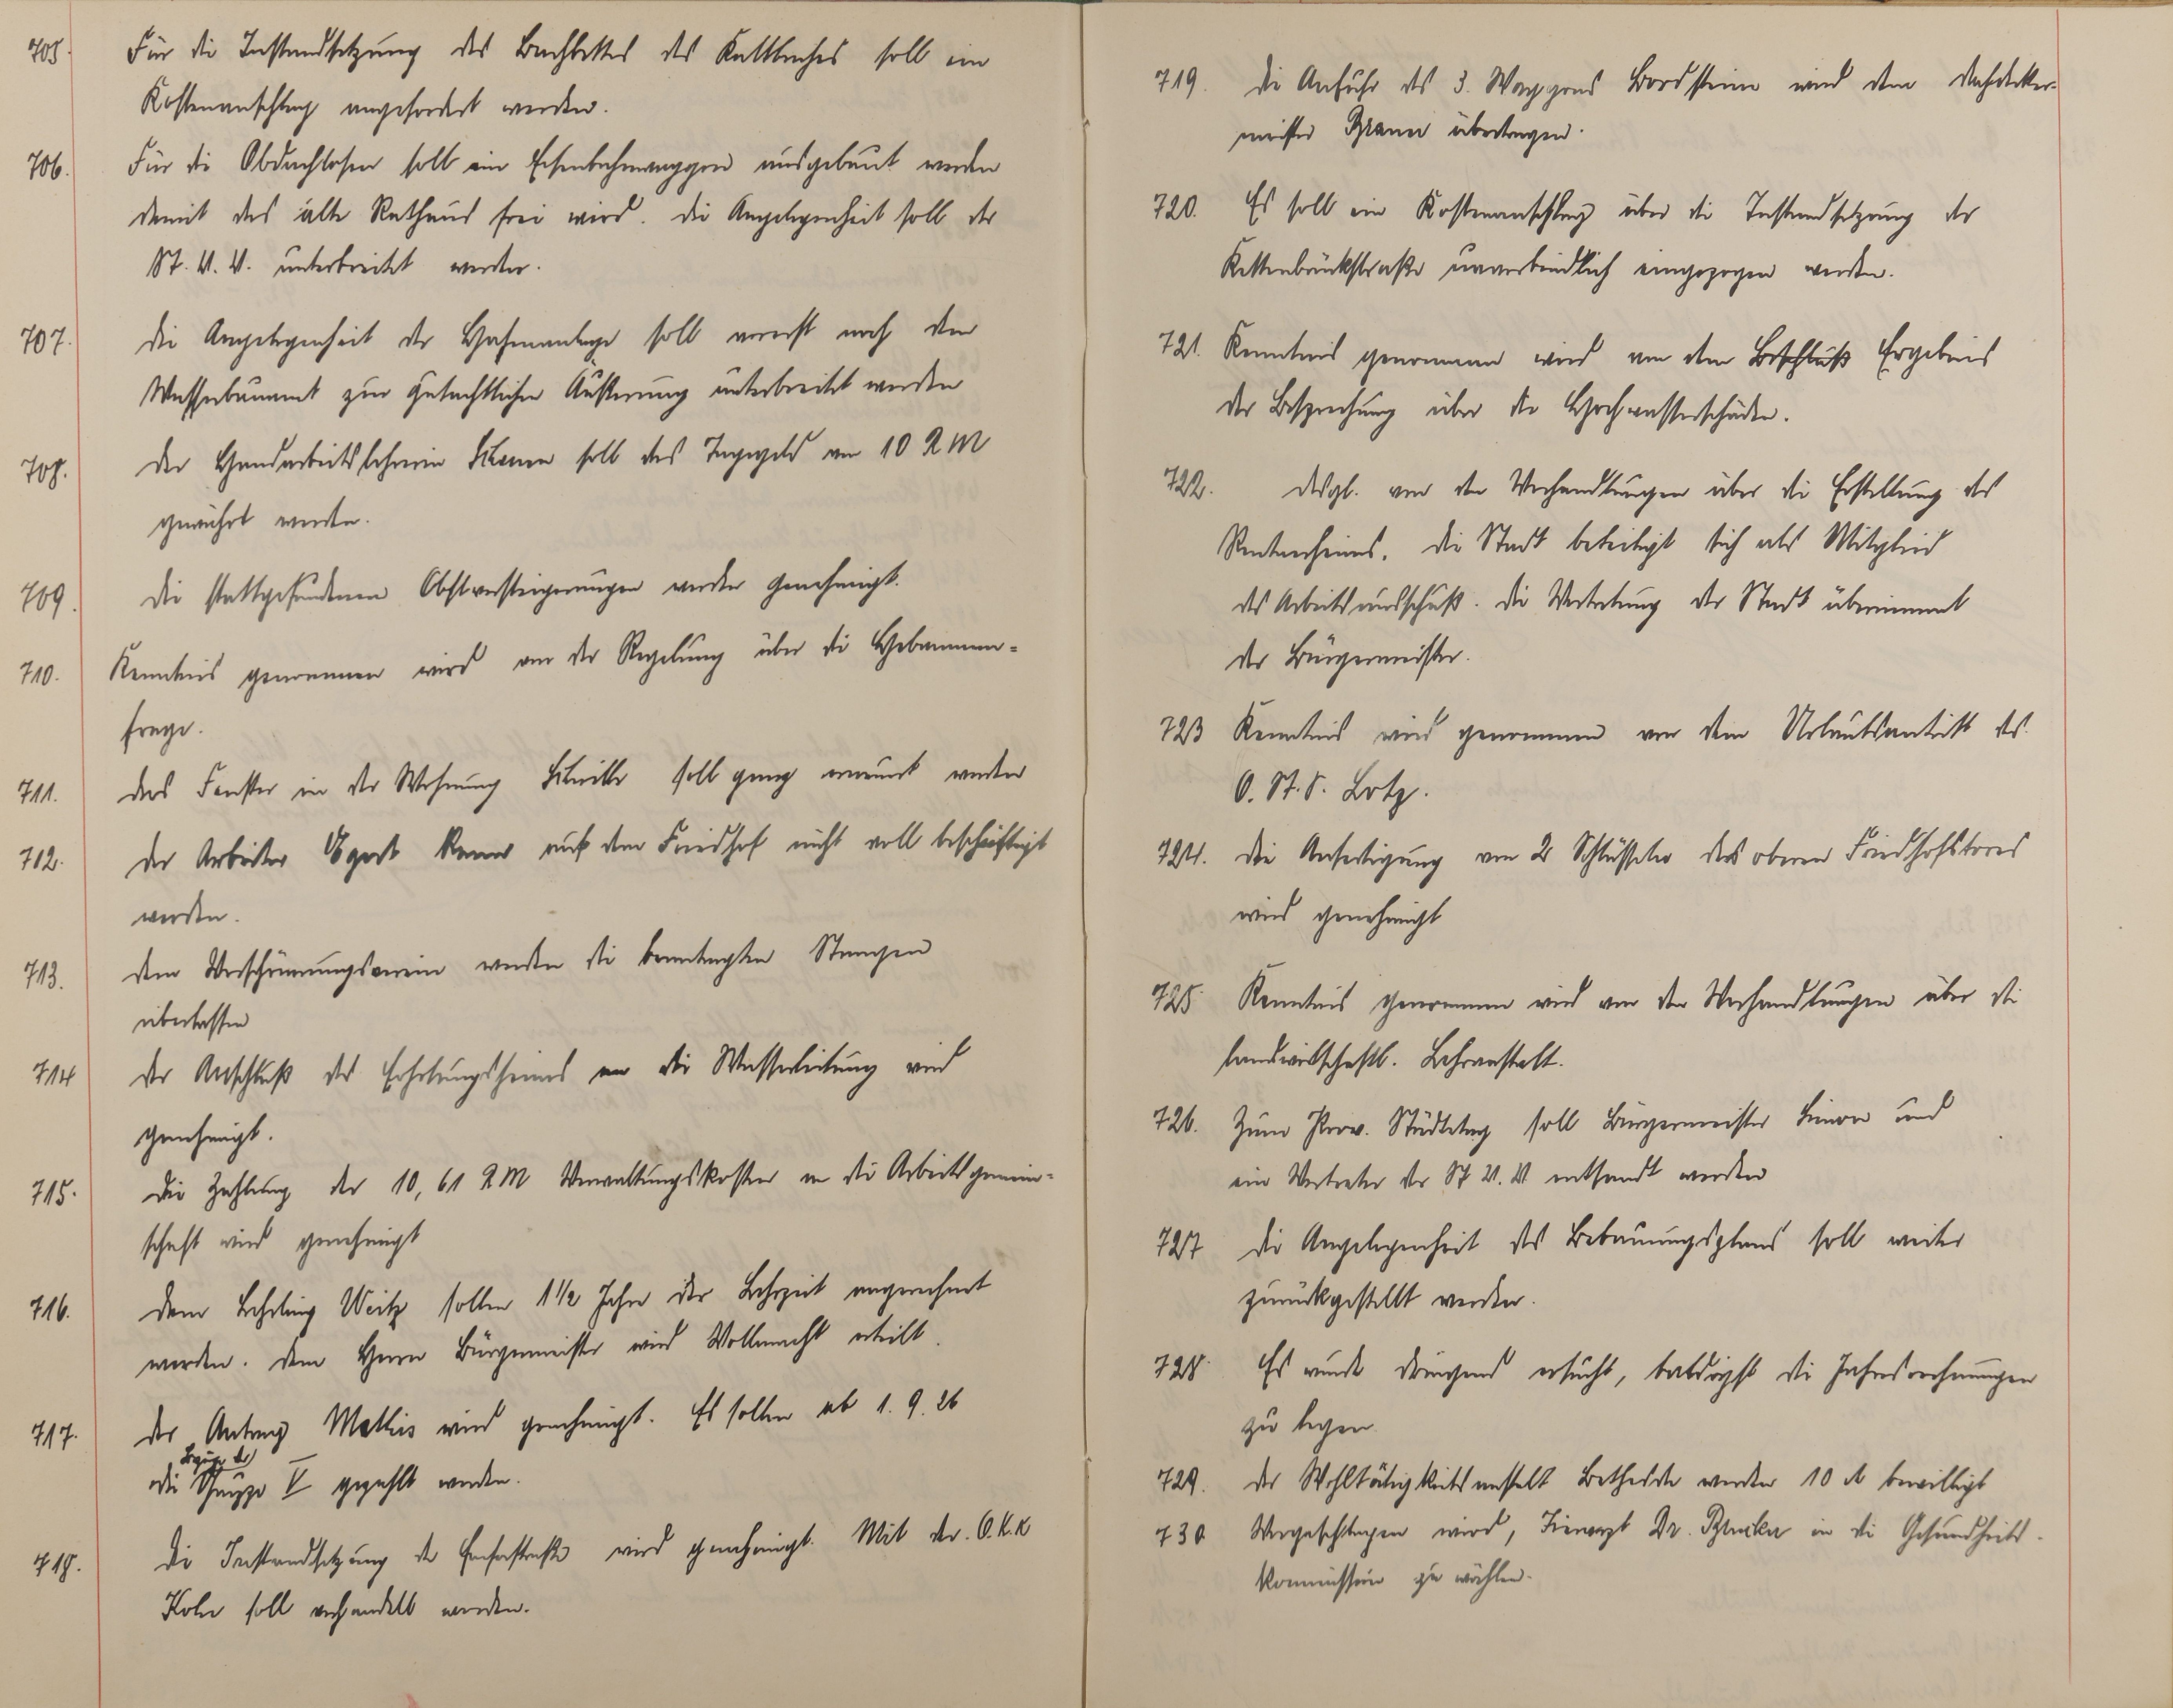 705. Für die Instandsetzung des Bachbettes des Kaltbaches soll ein
Kostenanschlag angefordert werden.
706. Für die Obdachlosen soll ein Eisenbahnwaggon ausgebaut werden
damit das alte Rathaus frei wird. Die Angelegenheit soll der
St. V. V. unterbreitet werden.
707. Die Angelegenheit der Hafenanlage soll vorerst noch dem
Wasserbauamt zur gutachtlichen Äußerung unterbreitet werden
708. Der Handarbeitslehrerin soll das Tagegeld von 10 RM
gewährt werden.
709. Die stattgefundenen Obstversteigerungen werden genehmigt.
710. Kenntnis genommen wird von der Regelung über die Hebammen=
frage.
711. Das Fenster in der Wohnung soll ganz erneuert werden
712. Der Arbeiter Egert kann auf dem Friedhof nicht voll beschäftigt
werden.
713. Dem Verschönerungsverein werden die beantragten Stangen
überlassen
714 Der Anschluß des Erholungsheims an die Wasserleitung wird
genehmigt.
715. Die Zahlung der 10,61 RM Verwaltungskosten an die Arbeitsgemein=
schaft wird genehmigt
716. Dem Lehrling Weitz sollen 1 1/2 Jahre der Lehrzeit angerechnet
werden. Dem Herrn Bürgermeister wird Vollmacht erteilt.
717. Der Antrag Mathis wird genehmigt. Es sollen ab 1. 9. 26
die Bezüge der Gruppe V gezahlt werden.
718. Die Instandsetzung der Emserstraße wird genehmigt. Mit der O.K.K
soll verhandelt werden.
719. Die Anfuhr des 3. Waggons Bordsteine wird dem Dachdecker-
meister übertragen.
720. Es soll ein Kostenanschlag über die Instandsetzung der
Kettenbrückstraße unverbindlich eingezogen werden.
721. Kenntnis genommen wird von dem Beschluß Ergebnis
der Besprechung über die Hochwasserschäden.
722. desgl. von den Verhandlungen über die Erstellung des
Rentnerheims. Die Stadt beteiligt sich als Mitglied
des Arbeitsausschuß. Die Vertretung der Stadt übernimmt
der Bürgermeister.
723 Kenntnis wird genommen von dem Urlaubsantritt des
O. St. S. Lotz.
724. Die Anfertigung von 2 Schlüsseln des oberen Friedhofstores
wird genehmigt
725 Kenntnis genommen wird von den Verhandlungen über die
landwirtschaftl. Lehranstalt.
726. Zum Prov. Städtetag soll Bürgermeister Simon und
ein Vertreter der St V. V entsandt werden
727 Die Angelegenheit des Bebauungsplans soll weiter
zurückgestellt werden.
728 Es wurde dringend ersucht, baldigst die Jahresrechnungen
zu legen
729. Der Wohltätigkeitsanstalt Bethesda werden 10 M bewilligt
730 Vorgeschlagen wird, Tierarzt Dr. in die Gesundheits-
kommission zu wählen.